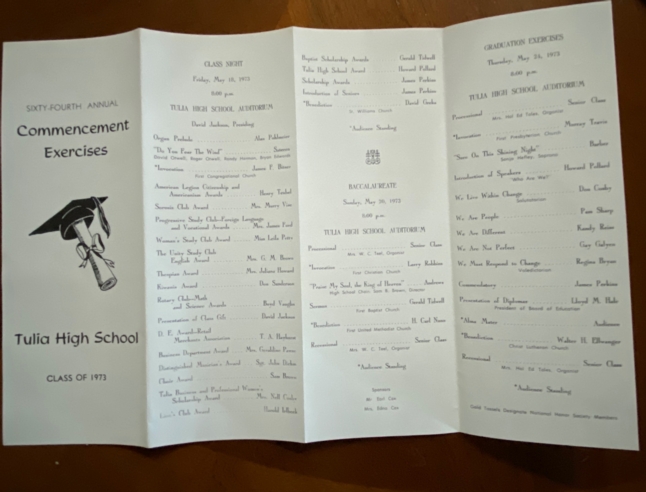 SIXTY-FOURTH ANNUAL
Commencement
Exercises
Tulia High School
CLASS OF 1973
CLASS NIGHT
Friday, May 18, 1973
8:00 p.m.
TULIA HIGH SCHOOL AUDITORIUM
David Jackson, Presiding
Organ Prelude
First Congregational Church
American Legion Citizenship and
Americanism Awards
Sorosis Club Award
Progressive Study Club-Foreign Language
and Vocational Awards Mrs. James Ford
Woman's Study Club Award
The Unity Study Club
English Award Mrs. G. M.
Thespian Award
Kiwanis Award Don Sanderson
Rotary Club-Math
and Science Awards Boyd Vaughn
Presentation of Class Gift David Jackson
D. E. Award-Retail
Merchants Association
Business Department Award Mrs. Geraldine
Choir Award
Tulia Business and Professional Women's
Scholarship Award Mrs. Nell
Lion's Club Award
Baptist Scholarship Awards Gerald Tidwell
Tulia High School Award Howard Pollard
Scholarship Awards James Perkins
Introduction of Seniors James Perkins
*Benediction David
*Audience Standing
BACCALAUREATE
Sunday, May 20, 1973
8:00 p.m.
TULIA HIGH SCHOOL AUDITORIUM
Processional Senior Class
Mrs. W. C. Teel, Organist
*Invocation Larry Robbins
First Christian Church
"Praise My Soul, the King of Heaven"
Sermon Gerald Tidwell
First Baptist Church
*Benediction
First United Methodist Church
Recessional Senior Class
Mrs. W. C. Teel, Organist
*Audience Standing
Sponsors
Mr. Earl Cox
Mrs. Cox
GRADUATION EXERCISES
Thursday, May 24, 1973
8:00 p.m.
TULIA HIGH SCHOOL AUDITORIUM
Processional Senior Class
*Invocation Murray Travis
First Presbyterian Church
"Sure On This Shining Night" Barber
Introduction of Speakers Howard Pollard
"Who Are We?"
We Live Within Change Don Cosby
Salutatorian
We Are People Pam Sharp
We Are Different Randy Rains
We Are Not Perfect Guy
We Must Respond to Change Regina Bryan
Valedictorian
Commentary James Perkins
Presentation of Diplomas Lloyd M. Hale
President of Board of Education
*Alma Mater Audience
*Benediction Walter H.
Christ Lutheran Church
Recessional Senior Class
*Audience Standing
Gold Tassels Designate National Honor Society Members